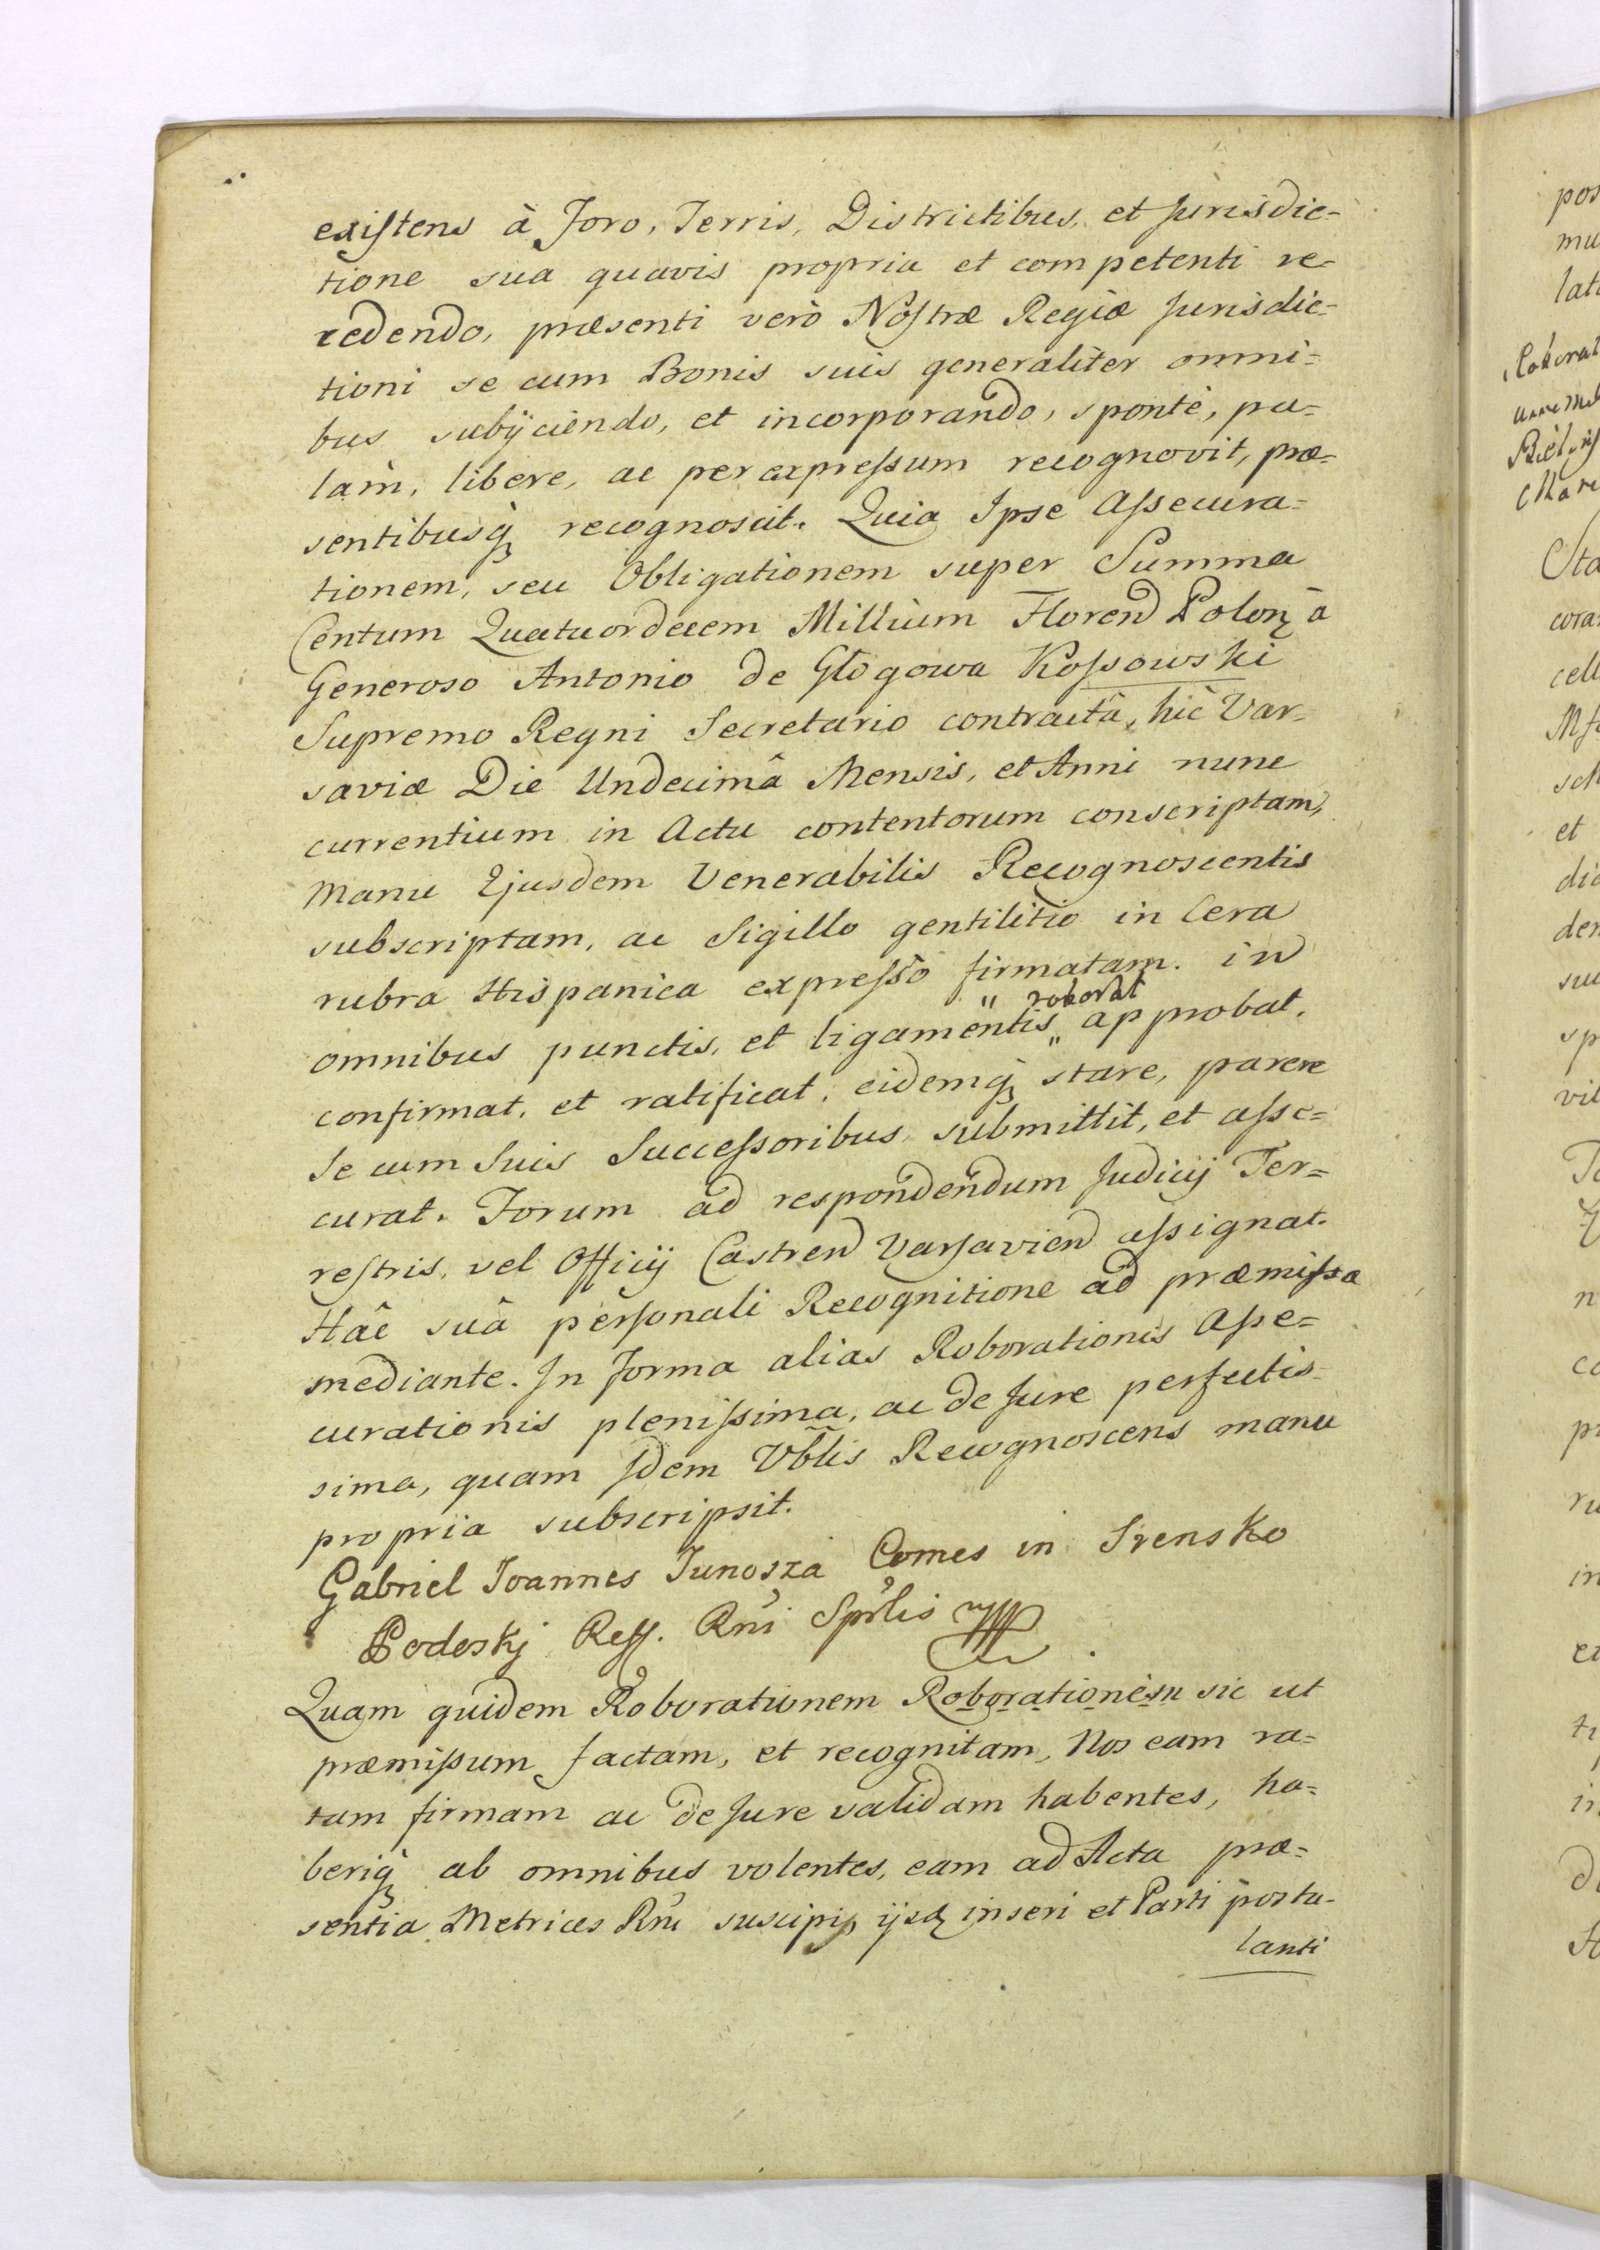 existens à Foro, Terris, Districtibus, et Jurisdic-
tione sua quavis propria et competenti re-
cedendo, præsenti verò Nostræ Regiæ Jurisdic-
tioni se cum Bonis suis generalitèr omni=
bus subijciendo, et incorporando, spontè, pa=
làm, libere, ac per expressum recognovit, præ-
sentibusq̀ recognoscit. Quia Ipse Assecura-
tionem, seu Obligationem super Summa
Centum Quatuordecem Millium Floren Polon à
Generoso Antonio de Głogowa Kossowski
Supremo Regni Secretario contractâ, hic Var-
saviæ Die Undecimâ Mensis, et Anni nunc
currentium in Actu contentorum conscriptam,
Manu Ejusdem Venerabilis Recognoscentis
subscriptam, ac Sigillo gentilitio in Cera
rubra Hispanica expresso firmatam. in
omnibus punctis, et ligamentis " roborat " approbat,
confirmat, et ratificat, eidemq̀ stare, parere
Se cum Suis Successoribus submittit, et asse=
curat. Forum ad respondendum Judicij Ter=
restris, vel Officij Castren Varsavien assignat.
Hâc suâ personali Recognitione ad præmissa
mediante. In Forma alias Roborationis Asse=
curationis plenissima, ac de Jure perfectis-
sima, quam Idem Vblis Recognoscens manu
propria subscripsit.
Gabriel Joannes Junosza Comes in Srensko
Podoskj Reff. Rni Sprlis
Quam quidem Roborationem Roborationem sic ut
præmissum factam, et recognitam, Nos eam ra=
tam firmam ac de Jure validam habentes, ha=
beriq̀ ab omnibus volentes, eam ad Acta præ=
sentia Metrices Rni suscipi, ijsq̀ inseri et Parti postu-
lanti
pos
mu
lat
Roborat
Sta
cora
cell
sch
et
dic
den
su
sp
vil
n
co
pr
ru
in